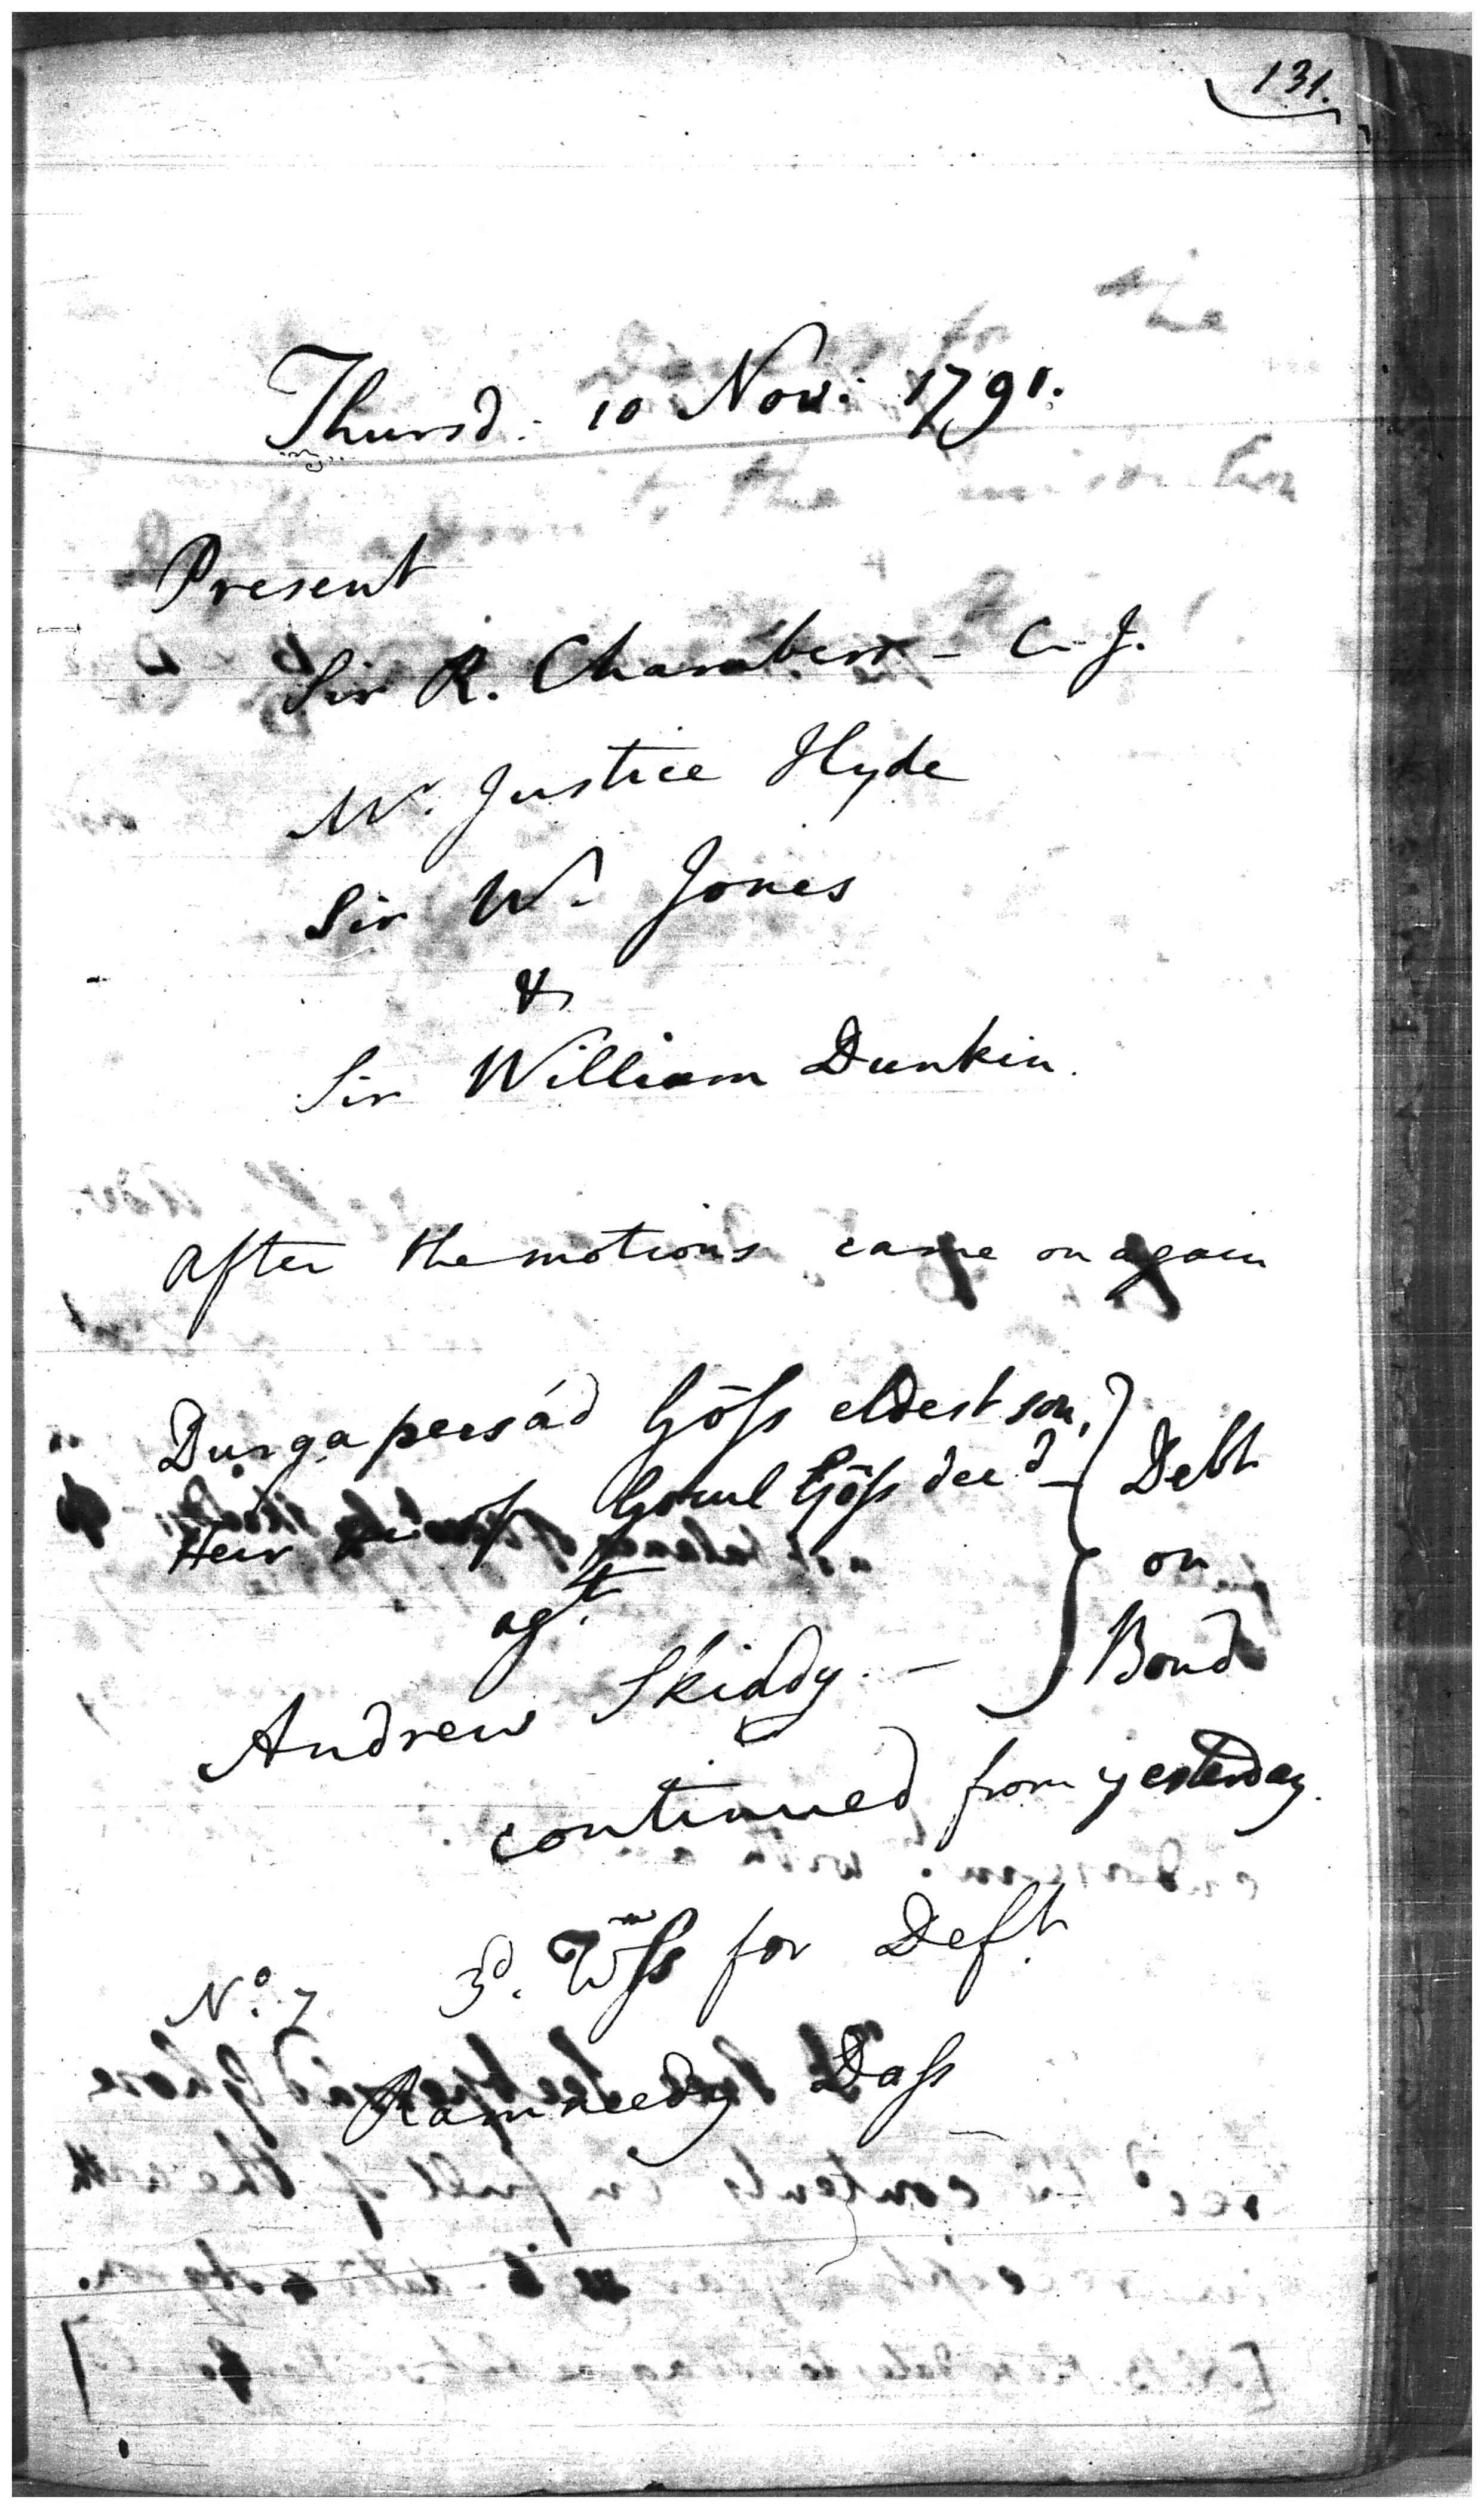 131.
Thursd. 10 Nov: 1791.
Present
Sir R. Chambers - C. J.
Mr. Justice Hyde
Sir Wm. Jones
&
Sir William Dunkin.
After the motions came on again
Durga persád Gōss eldest son, } Debt
Heir of Gocul Gōss decd -
agt. on
Andrew Skiddy. - Bond
continued from yesterday.
No. 7 3d. Wss for Deft.
Dass